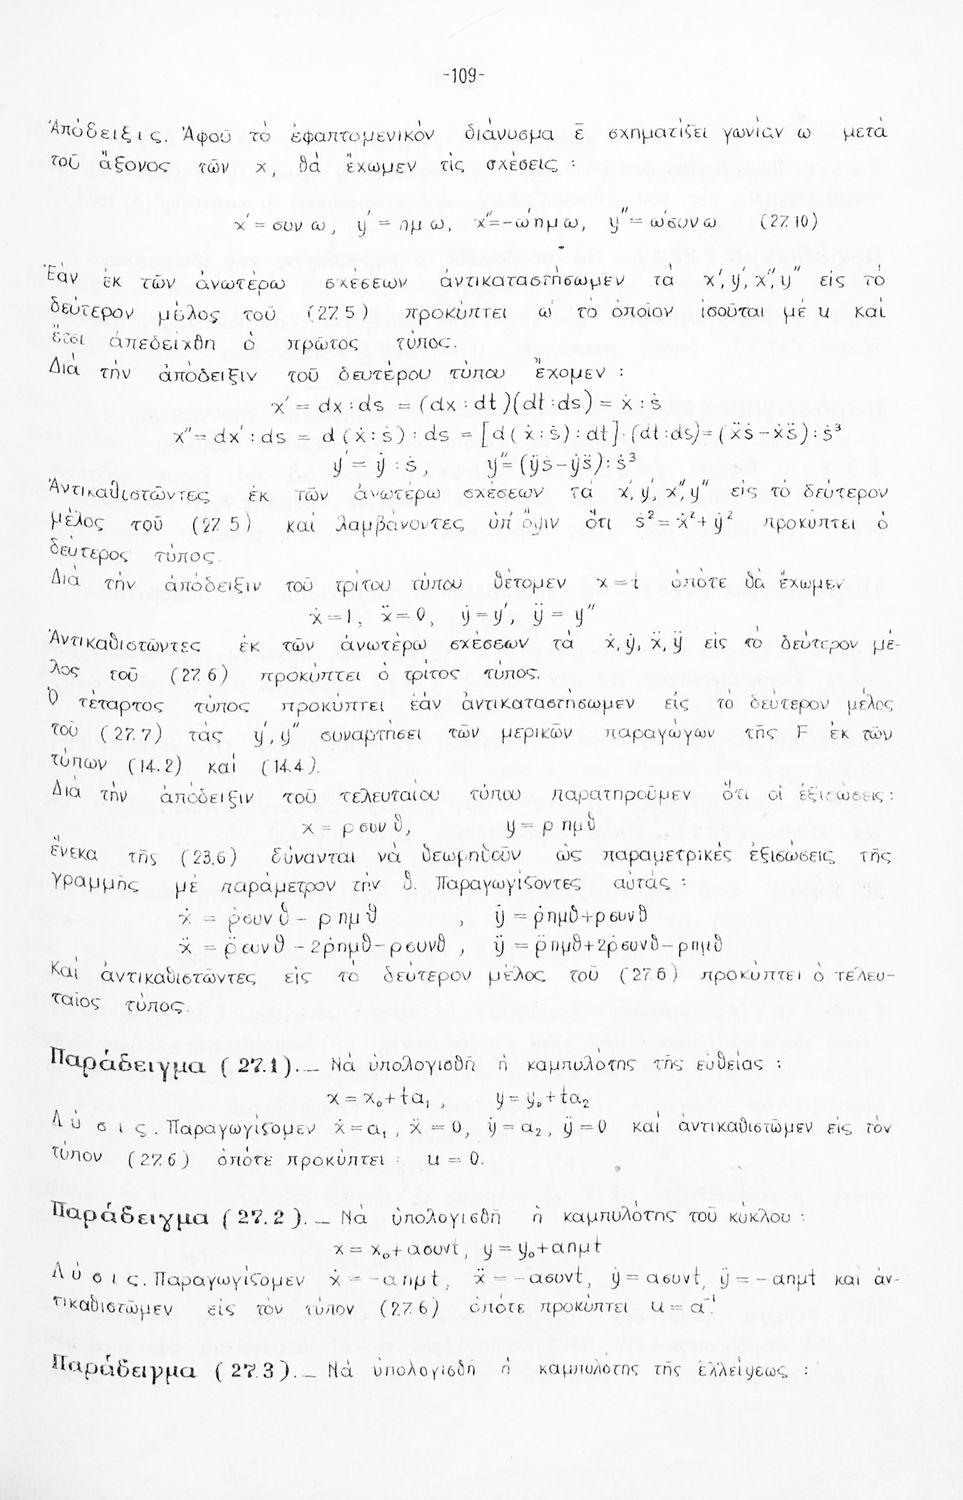 -109-
Ἀπόδειξις. Ἀφοῦ τό ἐφαπτομενικόν διάνυσμα ε̄ σχηματίζει γωνίαν ω μετά
τοῦ ἄξονος τῶν x, θά ἔχωμεν τίς σχέσεις :
x′ = συν ω, y′ = ημ ω, x″=-ω′ημω, y″ = ω′συνω (27.10)
Ἐάν ἐκ τῶν ἀνωτέρω σχέσεων ἀντικαταστήσωμεν τά x′, y′, x″, y″ εἰς τό
δεύτερον μέλος τοῦ (27.5) προκύπτει ω′ τό ὁποῖον ἰσοῦται μέ u καί
ἔτσι ἀπεδείχθη ὁ πρῶτος τύπος.
Διά τήν ἀπόδειξιν τοῦ δευτέρου τύπου ἔχομεν :
x′ = dx : ds = (dx : dt)(dt : ds) = ẋ : ṡ
x″= dx′ : ds = d (ẋ : ṡ) : ds = [d ( ẋ : ṡ) : dt]·(dt : ds)= (ẍṡ-ẋs̈) : ṡ³
y′ = ẏ : ṡ, y″= (ÿṡ-ẏs̈) : ṡ³
Ἀντικαθιστῶντες ἐκ τῶν ἀνωτέρω σχέσεων τά x′, y′, x″, y″ εἰς τό δεύτερον
μέλος τοῦ (27.5) καί λαμβάνοντες ὑπ' ὄψιν ὅτι ṡ² = ẋ² + ẏ² προκύπτει ὁ
δεύτερος τύπος.
Διά τήν ἀπόδειξιν τοῦ τρίτου τύπου θέτομεν x = t ὁπότε θά ἔχωμεν
ẋ = 1, ẍ = 0, ẏ = y′, ÿ = y″
Ἀντικαθιστῶντες ἐκ τῶν ἀνωτέρω σχέσεων τά ẋ, ẏ, ẍ, ÿ εἰς το δεύτερον μέ-
λος τοῦ (27.6) προκύπτει ὁ τρίτος τύπος.
Ὁ τέταρτος τύπος προκύπτει ἐάν ἀντικαταστήσωμεν εἰς τό δεύτερον μέλος
τοῦ (27.7) τάς y′, y″ συναρτήσει τῶν μερικῶν παραγώγων τῆς F ἐκ τῶν
τύπων (14.2) καί (14.4).
Διά τήν ἀπόδειξιν τοῦ τελευταίου τύπου παρατηροῦμεν ὅτι οἱ ἐξισώσεις :
x = ρ συν θ, y = ρ ημ θ
ἕνεκα τῆς (23.6) δύνανται νά θεωρηθοῦν ὡς παραμετρικές ἐξισώσεις τῆς
γραμμῆς μέ παράμετρον τήν θ. Παραγωγίζοντες αὐτάς :
ẋ = ρ̇συν θ - ρ ημ θ , ẏ = ρ̇ημθ+ρσυνθ
ẍ = ρ̈συνθ - 2ρ̇ημθ-ρσυνθ , ÿ = ρ̈ημθ+2ρ̇συνθ-ρημθ
Καί ἀντικαθιστῶντες εἰς τό δεύτερον μέλος τοῦ (27.6) προκύπτει ὁ τελευ-
ταῖος τύπος.
Παράδειγμα (27.1)._ Νά ὑπολογισθῇ ἡ καμπυλότης τῆς εὐθείας :
x = x₀+ta₁ , y = y₀+ta₂
Λύσις. Παραγωγίζομεν ẋ = a₁ , ẍ = 0, ẏ = a₂, ÿ = 0 καί ἀντικαθιστῶμεν εἰς τόν
τύπον (27.6) ὁπότε προκύπτει : u = 0.
Παράδειγμα (27.2)._ Νά ὑπολογισθῇ ἡ καμπυλότης τοῦ κύκλου :
x = x₀+aσυνt, y = y₀+aημt
Λύσις. Παραγωγίζομεν ẋ = -aημt, ẍ = -aσυνt, ẏ = aσυνt, ÿ = -aημt καί ἀν-
τικαθιστῶμεν εἰς τόν τύπον (27.6) ὁπότε προκύπτει u = a⁻¹
Παράδειγμα (27.3)._ Νά ὑπολογισθῇ ἡ καμπυλότης τῆς ἐλλείψεως :